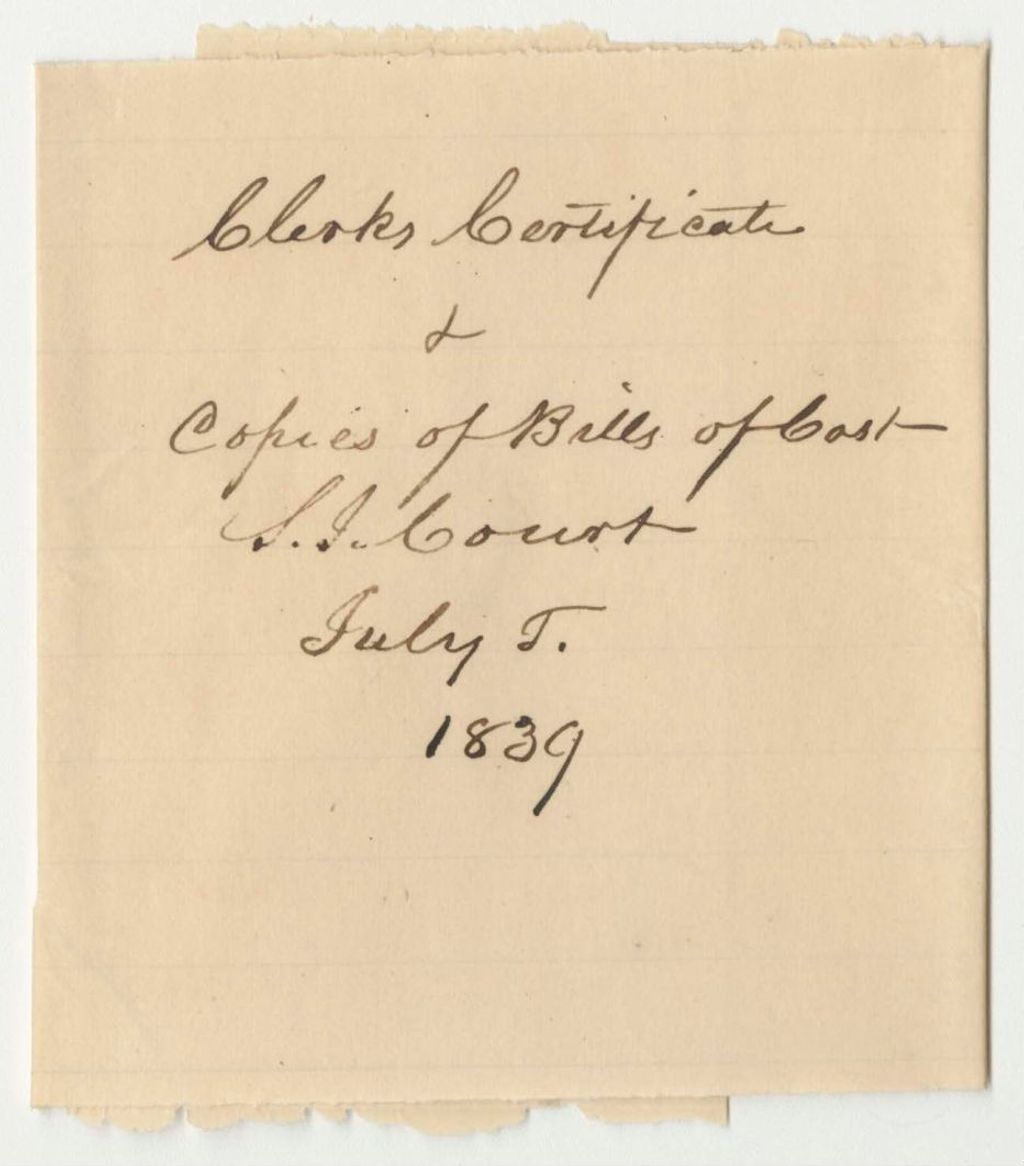 Clerks Certificate
&
Copies of Bills of Cost
S.J. Court
July T.
1839